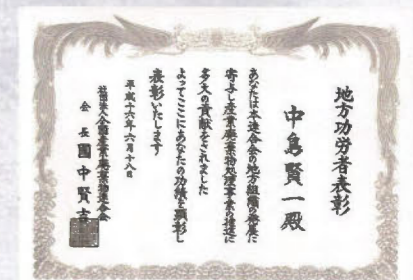 地方功労者表彰
中島賢一殿
あなたは本連合会の地方組織の発展に
寄与し産業廃棄物処理事業の推進に
多大の貢献をされました
よってここにあなたの功績を顕彰し
表彰いたします
平成十六年六月十八日
社団法人全国産業廃棄物連合会
会長國中賢吉